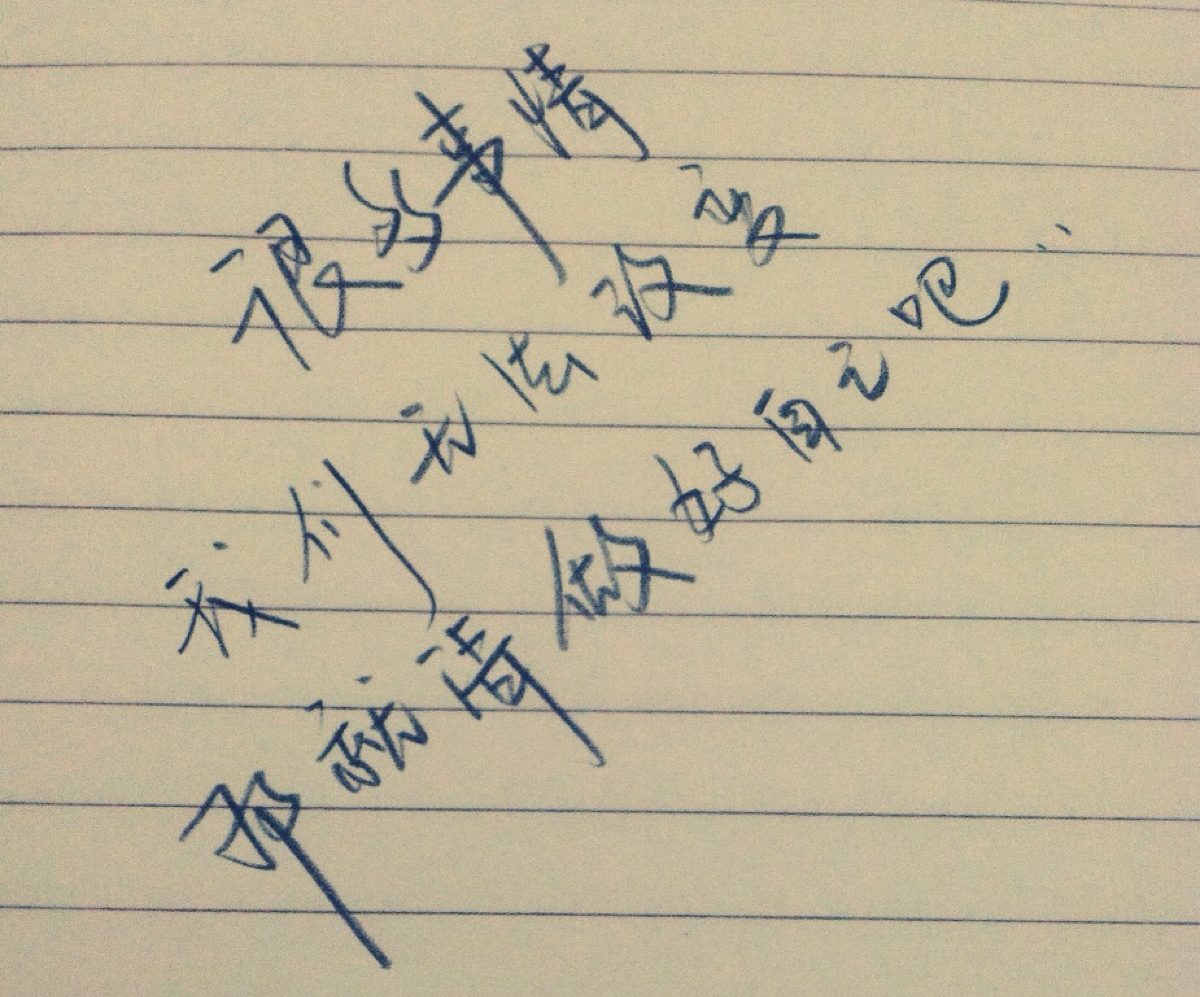 很多事情
我们无法改变
那就请做好自己吧…